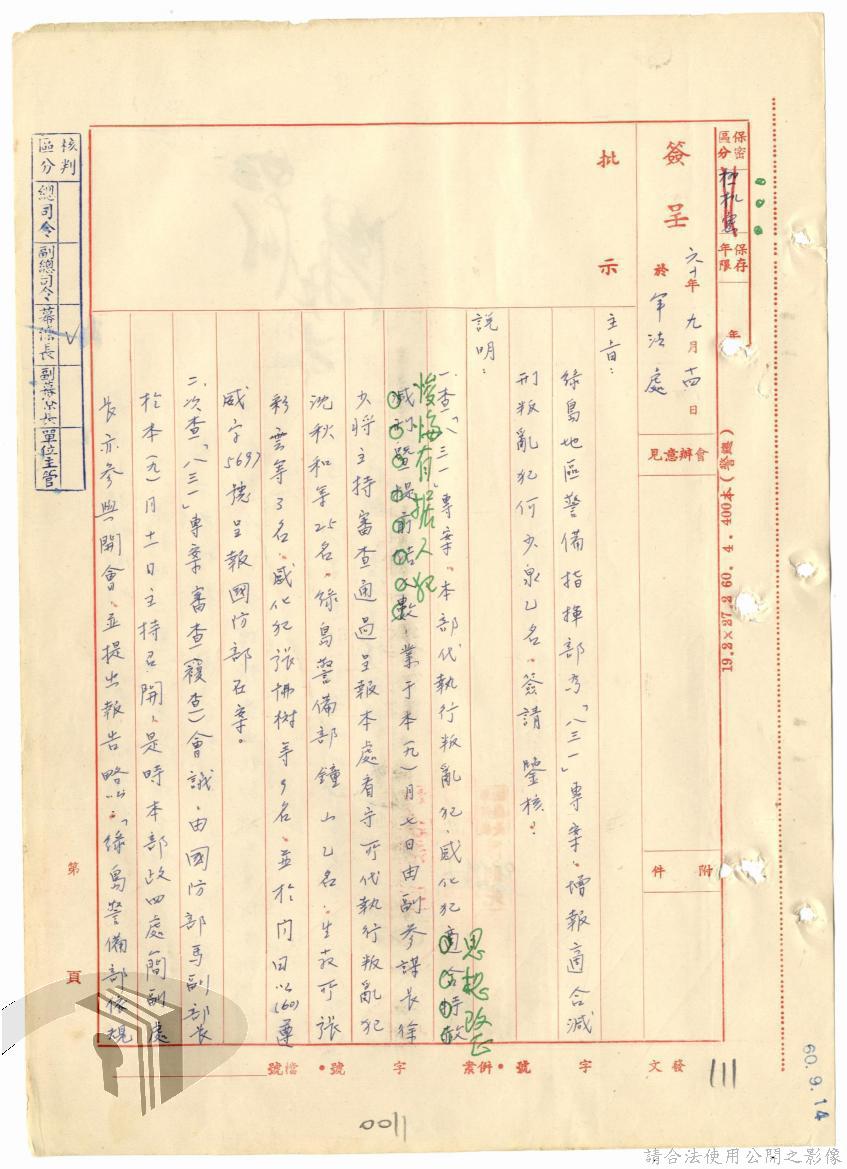 保密區分
極机密
保存年限
年
19.2×27.2 60.4.400本(警總)
簽呈
六十年九月十四日
於軍法處
會辦意見
附件
批示
主旨：
綠島地區警備指揮部為「八三一」專案，增報適合減
刑叛亂犯何少泉乙名，簽請鑒核。
說明：
一、查「八三一」專案，本部代執行叛亂犯、感化犯適合特赦
思想改正
悛悔有據人犯
減刑暨提前結
數，業于本(九)月七日由副參謀長徐
少將主持審查通過呈報本處看守所代執行叛亂犯
沈秋和等25名，綠島警備部鐘山乙名，生教所張
彩雲等3名，感化犯張
樹等9名，並於同日以(60)
威字5697號呈報國防部在案。
二、次查「八三一」專案審查(複查)會議，由國防部馬副部長
於本(九)月十一日主持召開，是時本部政四處簡副處
長亦參與開會，並提出報告略以：「綠島警備部依規
核判區分
總司令
副總司令
幕僚長
副幕僚長
單位主管
第 頁
發文 字 號・併案 字 號・檔號
111
1100
60.9.14
請合法使用公開之影像